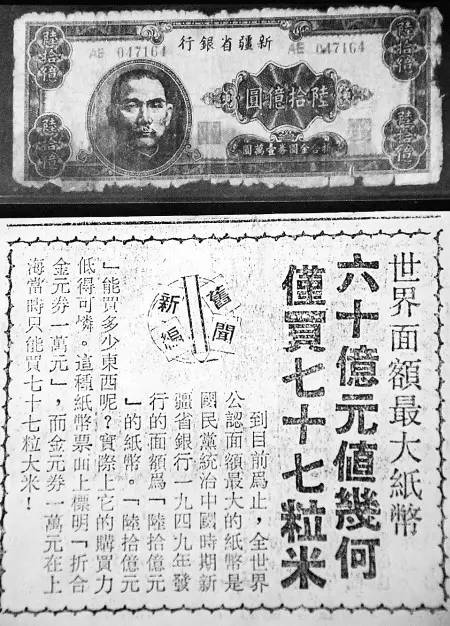 陸拾億
陸拾億
新疆省銀行
AE 047164
AE 047164
陸拾億圓
折合金圓券壹萬圓
陸拾億
陸拾億
世界面額最大紙幣
六十億元值幾何
僅買七十七粒米
舊聞
新編
到目前爲止，全世界
公認面額最大的紙幣是
國民黨統治中國時期新
疆省銀行一九四九年發
行的面額爲「陸拾億元
」的紙幣。「陸拾億元
」能買多少東西呢？實際上它的購買力
低得可憐。這種紙幣票面上標明「折合
金元券一萬元」，而金元券一萬元在上
海當時只能買七十七粒大米！